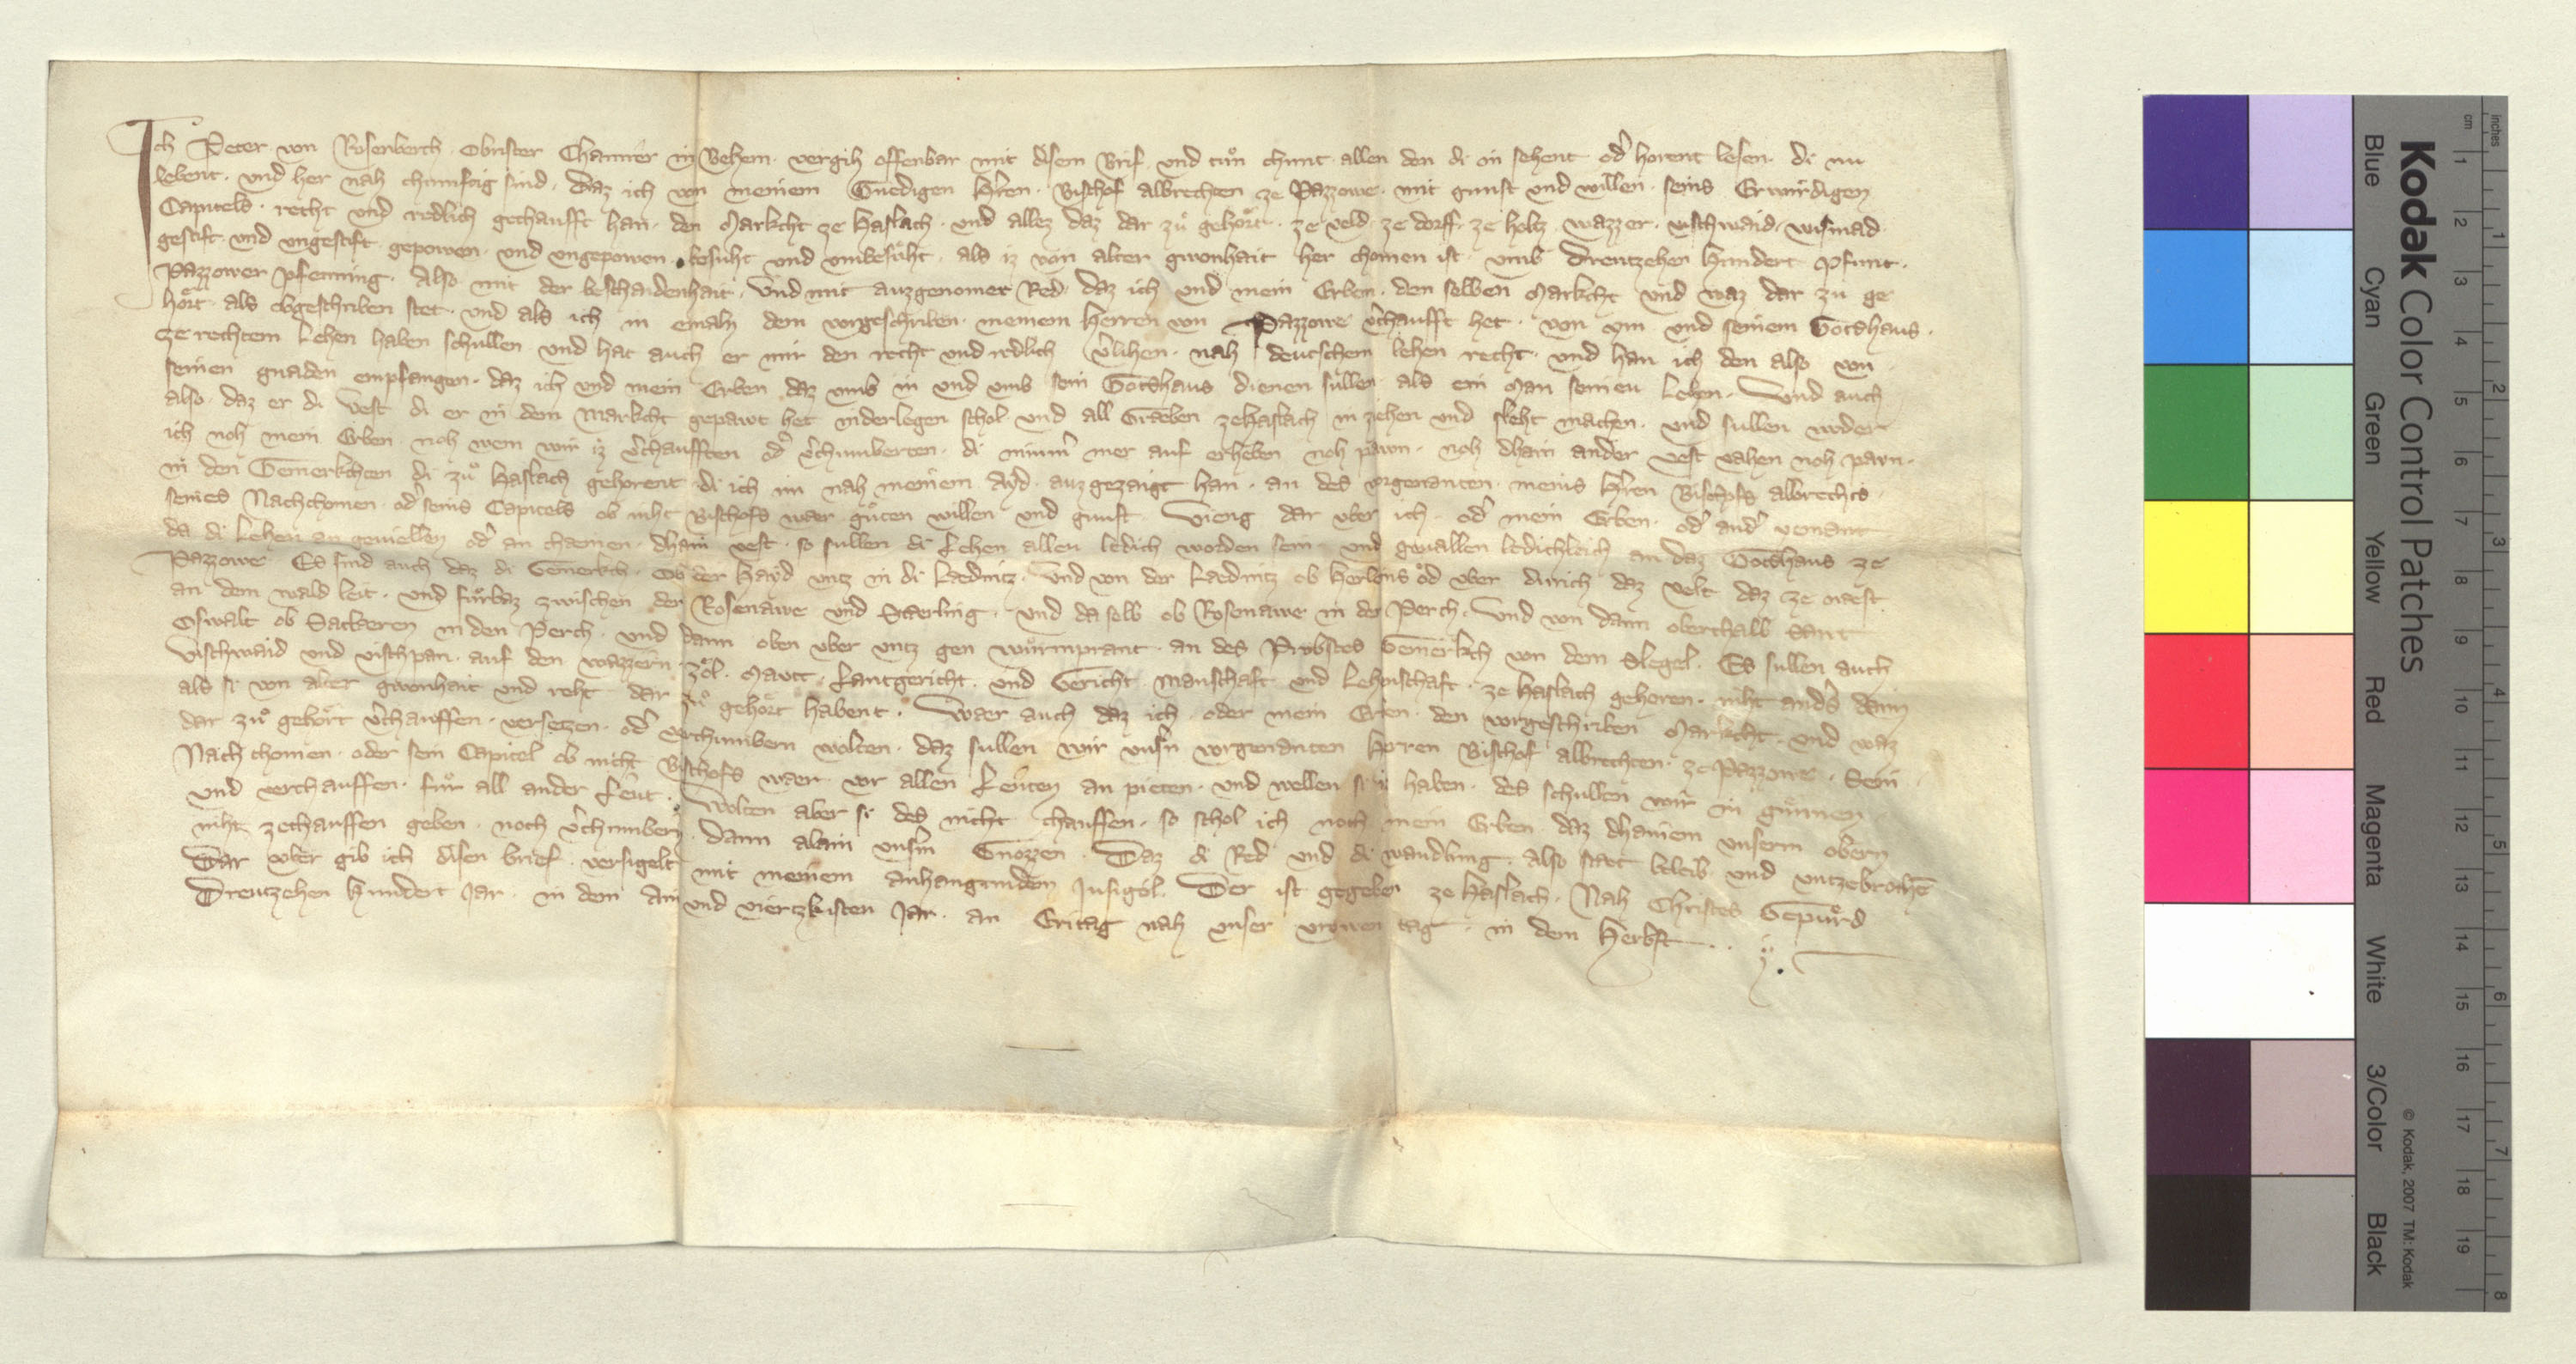 Ich Peter von Rosenberch Obrister Chamrer in Behem vergih offenbar mit disem Brif und tuͦn chunt allen den di in sehent od' horent lesen di nu
lebent und her nah chumftig sind daz ich von meinem Gnedigen H'ren Bischof albrechten ze Pazzowe mit gunst und willen seins Erwirdigen
Capitels recht und redlich gechaufft han den Markcht ze Haslach und allez daz dar zuͦ gehoͤrt ze veld ze dorff ze holtz wazzer vischwaid wismad
gestift und ungestift gepowen und ungepowen besuͤht und unbesuͤht als iz von alter gwonhait her chomen ist umb Dreutzehen Hundert pfunt
Pazzower pfenning Also mit der beschaidenhait Und mit auzgenomer Red daz ich und mein Erben den selben Markcht und waz dar zu ge
hoͤrt als obgeschriben stet und als ich in emaln dem vorgeschriben meinem Herren von Pazzowe v'chaufft het von im und seinem Gotshaus
ze rechtem Lehen haben schullen und hat auch er mir den recht und redlich v'lihen nah deutschem lehen recht und han ich den also von
seinen gnaden empfangen daz ich und mein Erben daz umb in und umb sein Gotshaus dienen sullen als ein Man seineu Lehen Und auch
also daz er di vest di er in dem Markcht gepawt het niderlegen schol und all Graeben ze Haslach in ziehen und sleht machen und sullen weder
ich noh mein Erben noh wem wir iz v'chaufften od' v'chumberten di nimm' mer auf erheben noh pawn noh dhain ander vest vahen noh pawn
in den Gemerkchten di zuͦ Haslach gehorent di ich im nah meinem Ayd auzgezaigt han an des vorgenanten meins H'ren Bischofs albrechts
seines Nachchomen od' seins Capitels ob niht Bischofs waer guͦten willen und gunst Vieng dar uber ich od' mein Erben od' and' yemant
da di Lehen an geviellen od' an chaemen dhain vest so sullen di Lehen allen ledich worden sein und gevallen ledichleich an daz Gotshaus ze
Pazzowe Es sind auch daz di Gemerkch Von der Hayd untz in di Laednitz Und von der Laednitz ob Herleins oͤd uber durich daz velt daz ze naest
an dem wald leit und fuͤrbaz zwischen der Rosenawe und Staerling und da selb ob Rosenawe in der Perch Und von dann oberthalb Sant
Oswalt ob Sackeren in den Perch und dann oben uber untz gen wuͤrmprant an des Probstes Gemerkch von dem Slegel Es sullen auch
vischwaid und vischpan auf den wazzern zoͤl Mautt Lantgericht und Gericht Manschaft und Lehenschaft ze Haslach gehoren niht anders dann
als si von alter gwonhait und reht dar zuͦ gehoͤrt habent Waer auch daz ich oder mein Erben den vorgeschriben Markcht und waz
dar zuͦ gehoͤrt v'chauffen versetzen od' verchumbern wolten daz sullen wir uns'm vorgenanten Herren Bischof albrechten ze Pazzowe Sein
Nach chomen oder sein Capitel ob nicht Bischofs waer vor allen Leuten an pieten und wellen si iz haben des schullen wir in guͤnnen
und verchauffen fuͤr all ander Leut Wolten aber si des nicht chauffen so schol ich noch mein Erben daz dhainem unserm obern
niht zechauffen geben noch v'chumbern dann alain uns'm Gnozzen Daz di Red und di wandlung also staet beleib und untzebrochen
Dar uber gib ich disen brief versigelt mit meinem anhangunden Insigel Der ist gegeben ze Haslach Nah Christes Gepuͤrd
Dreutzehen Hundert Jar in dem Ain und viertzkisten Jar an Eritag nah unser vrowen tag in dem Herbst
Kodak Color Control Patches
Blue Cyan Green Yellow Red Magenta White 3/Color Black
© Kodak, 2007 TM: Kodak
cm 1 2 3 4 5 6 7 8 9 10 11 12 13 14 15 16 17 18 19
inches 1 2 3 4 5 6 7 8